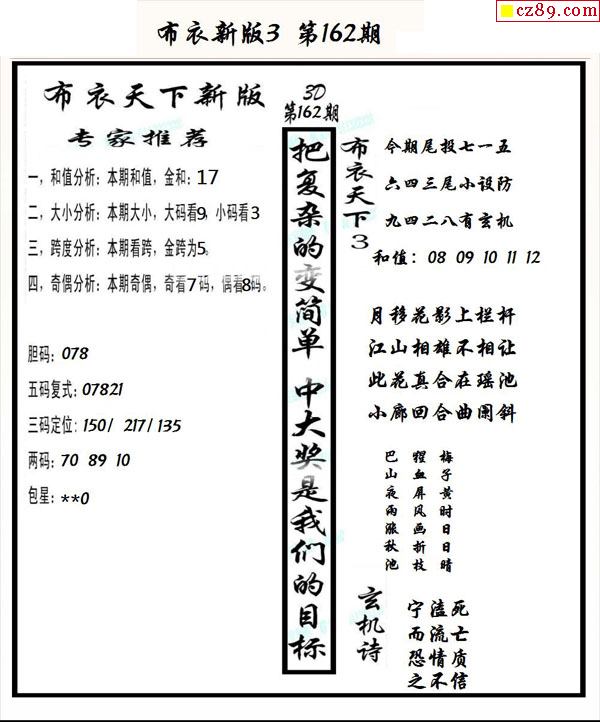 cz89.com
布衣新版3 第162期
布衣天下新版
专家推荐
一，和值分析：本期和值，金和：17
二，大小分析：本期大小，大码看9，小码看3
三，跨度分析：本期看跨，金跨为5。
四，奇偶分析：本期奇偶，奇看7码，偶看8码。
胆码：078
五码复式：07821
三码定位：150/ 217/135
两码：70 89 10
包星：**0
3D
第162期
把复杂的变简单 中大奖是我们的目标
布衣天下3
今期尾投七一五
六四三尾小设防
九四二八有玄机
和值：08 09 10 11 12
月移花影上栏杆
江山相雄不相让
此花真合在瑶池
小廊回合曲阑斜
梅子黄时日日晴
猩血屏风画折枝
巴山夜雨涨秋池
玄机诗
宁溘死
而流亡
恐情质
之不信